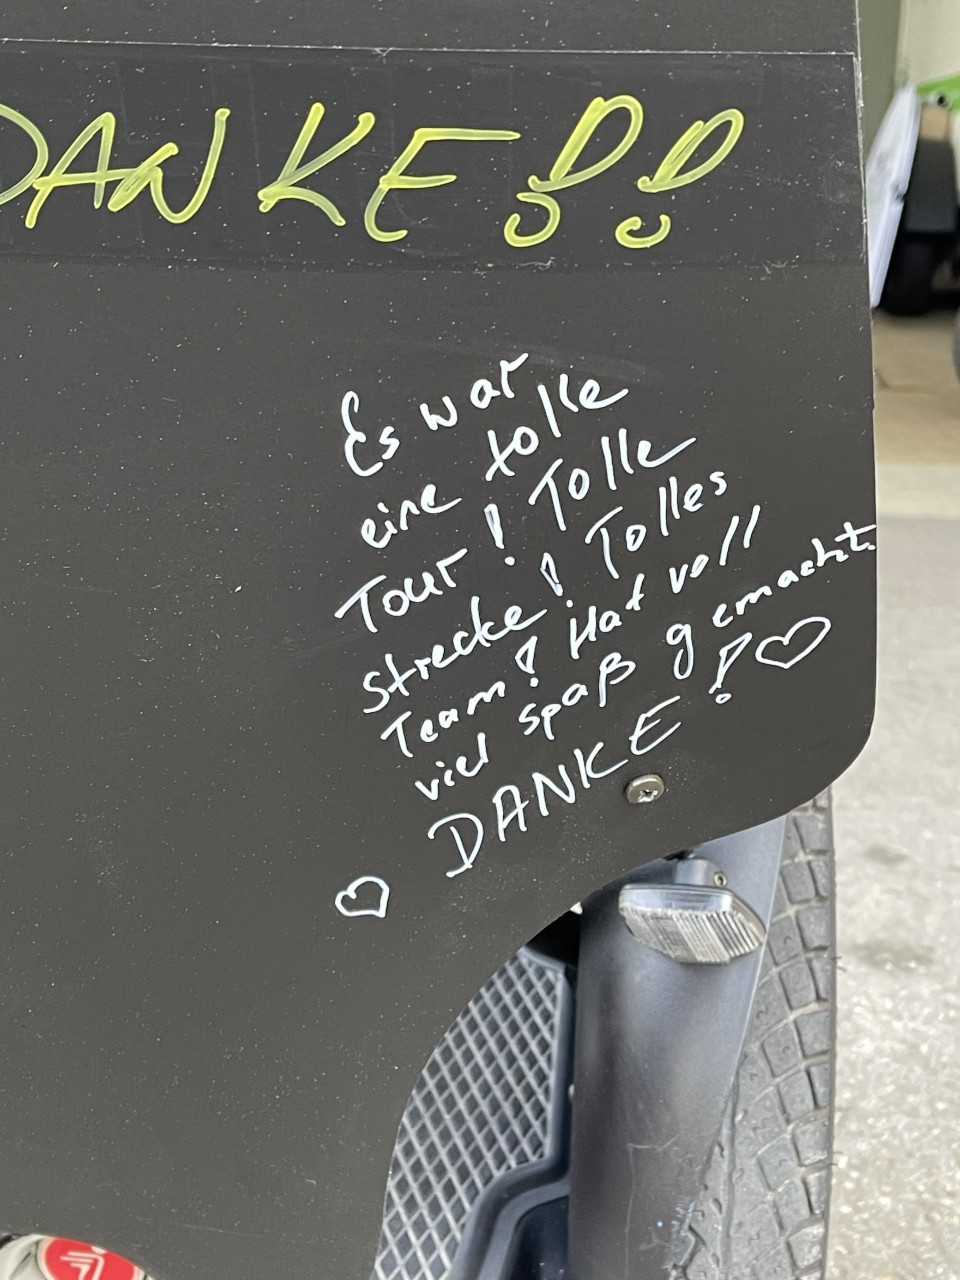 DANKE!!
Es war
eine tolle
Tour! Tolle
strecke! Tolles
Team! Hat voll
viel spaß gemacht.
DANKE!